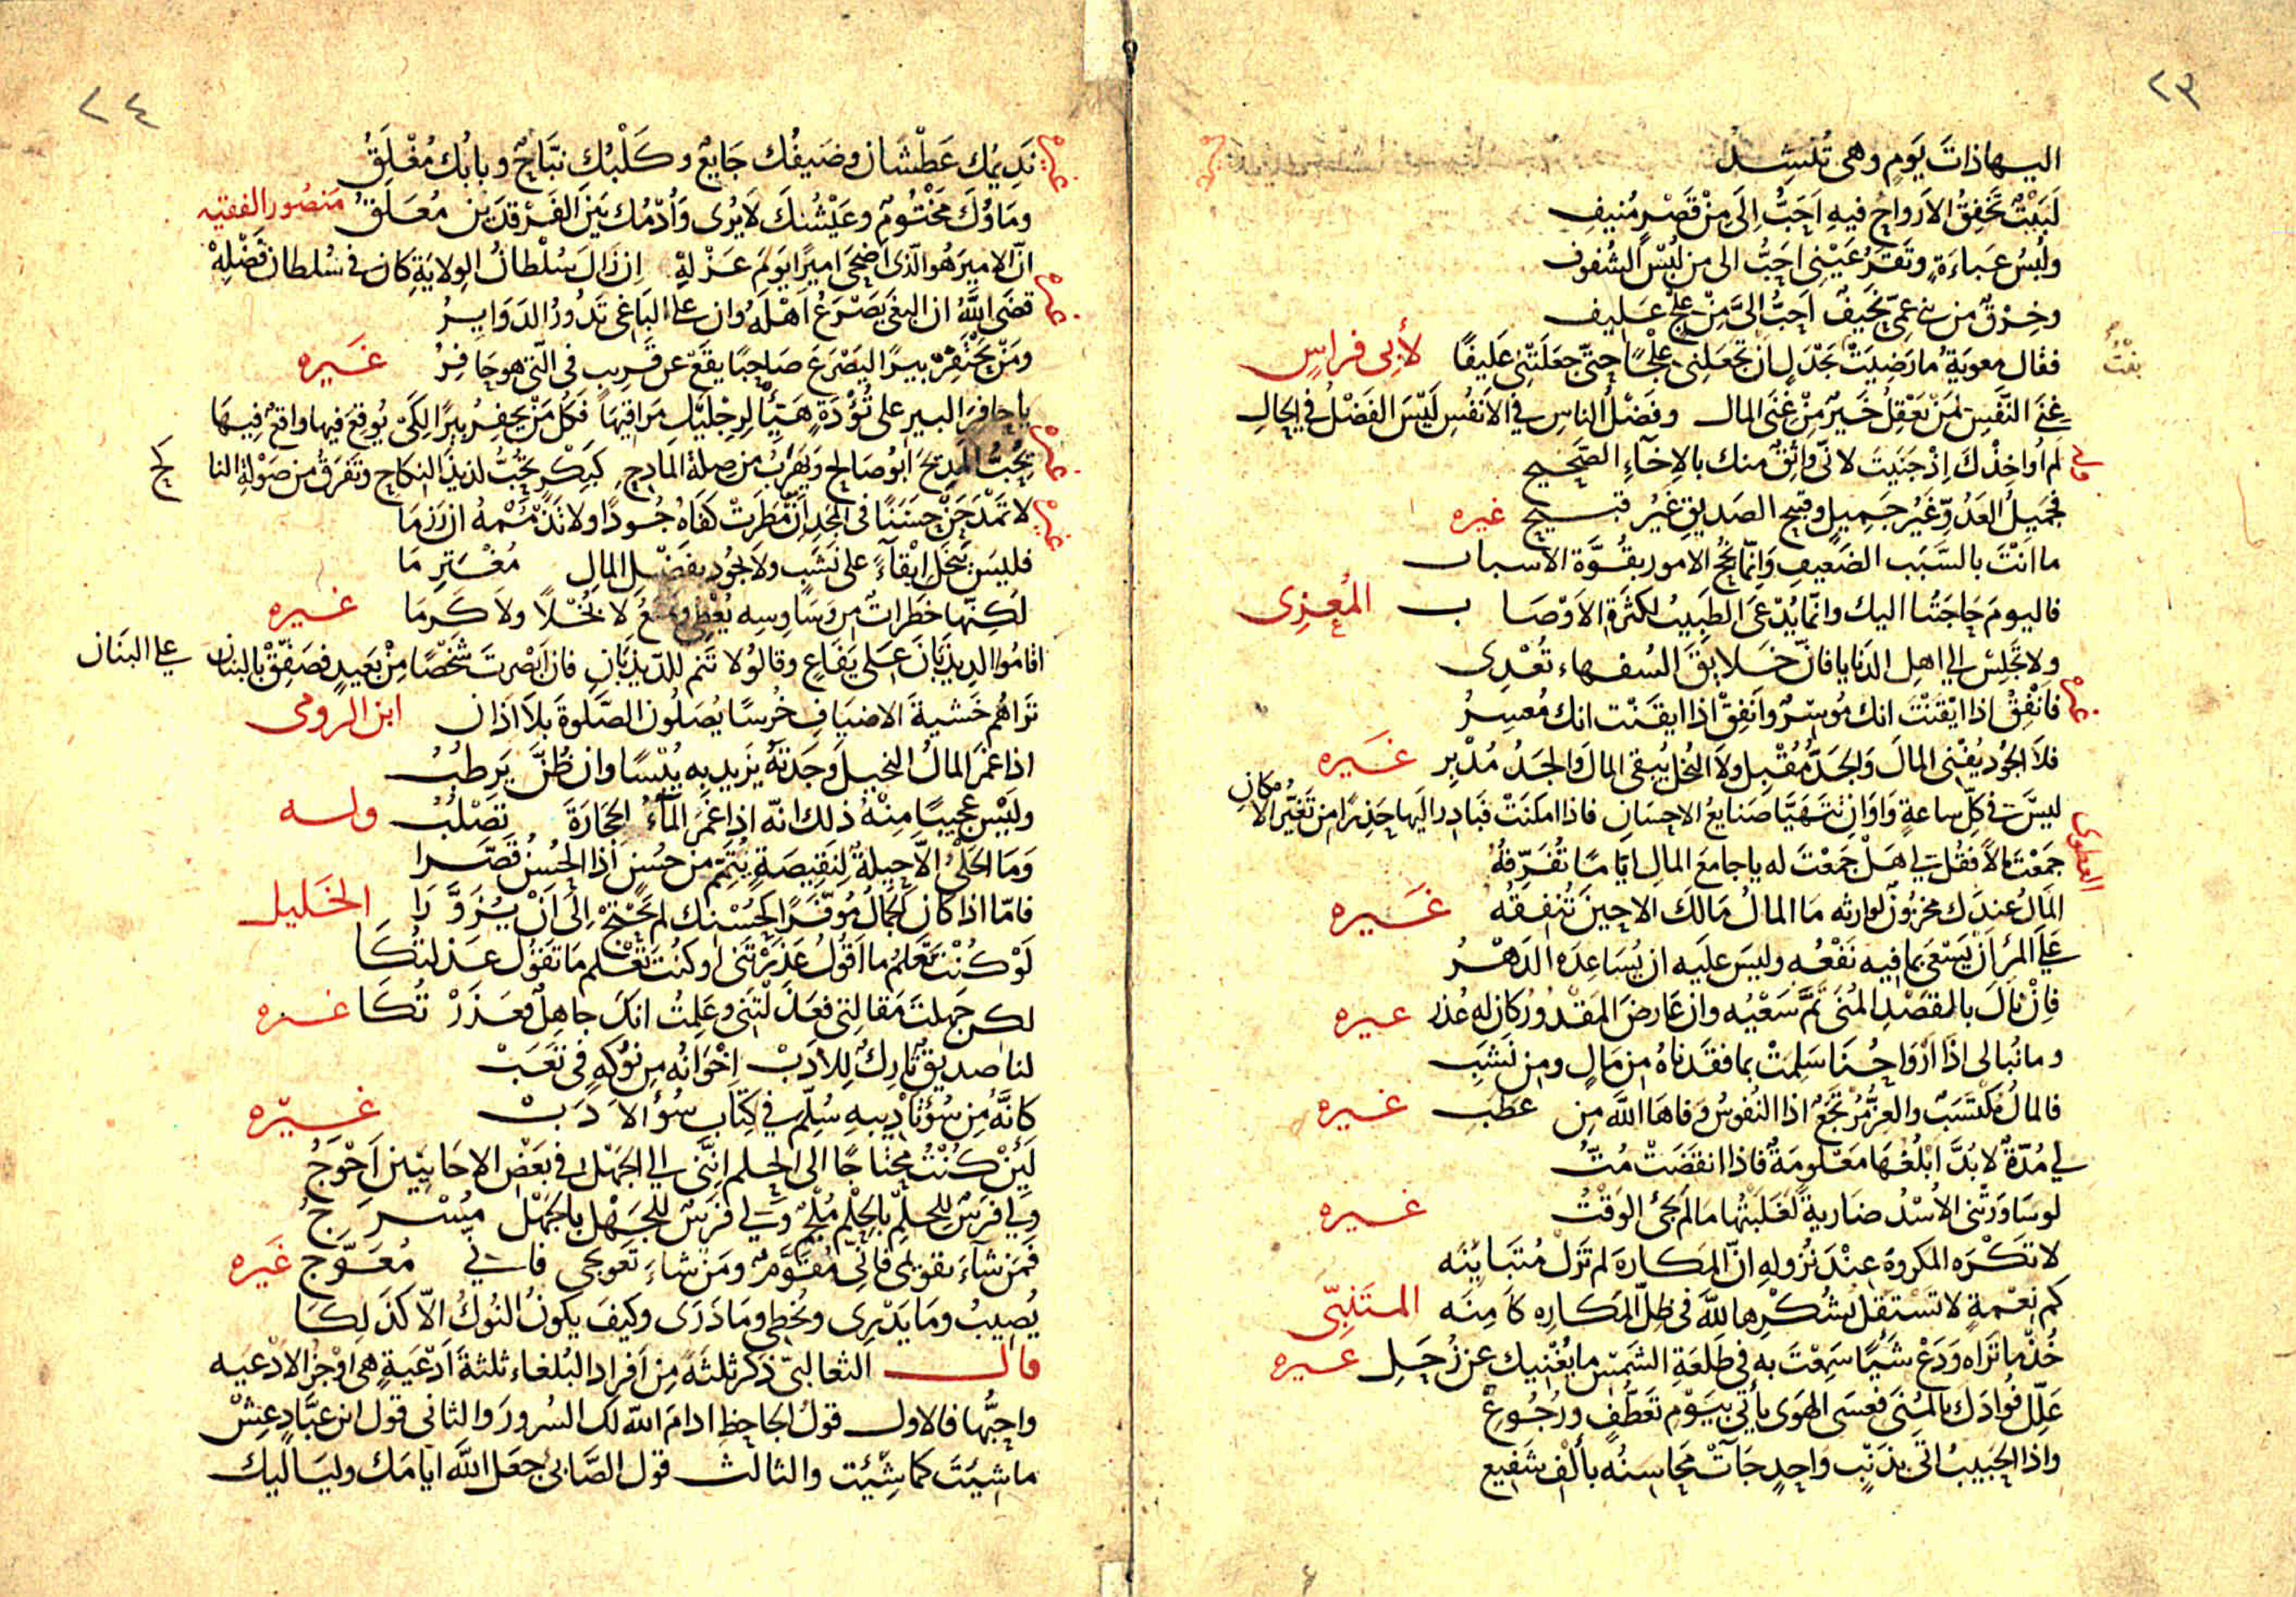 ٢٣
اليها ذات يوم وهي تنشد
لبيت تخفق الارواح فيه احب الي من قصر منيف
ولبس عباءة وتقر عيني احب الى من لبس الشفوف
وخرق من بني عمي نحيف احب الىّ من علج عليف
فقال معوية ما رضيت بجدل ان تجعلني علجًا حتى جعلتني عليفًا لأبي فراس
غنى النفس لمن يعقل خير من غنى المال وفضل الناس في الانفس ليس الفضل في الحال
لم أواخذك اذ جنيت لاني واثق منك بالاخآء الصحيح
فجميل العدو غير جميل وقبيح الصديق غير قبيح غيره
ما انت بالسبب الضعيف وانما نجح الامور بقوة الاسباب
فاليوم حاجتنا اليك وانما يدعى الطبيب لكثرة الاوصاب المعري
ولا تجلس الى اهل الدنايا فان خلايق السفهاء تعدى
غيره فانفق اذا ايقنت انك موسر وانفق اذا ايقنت انك معسر
فلا الجود يفنى المال والجد مقبل ولا البخل يبقى المال والجد مدبر غيره
ليس في كل ساعة واوان تتهيا صنايع الاحسان فاذا امكنت فبادر اليها حذرا من تغير الامكان
جمعت مالا فقل لي هل جمعت له يا جامع المال اياما تفرقه
المال عندك مخزون لوارثه ما المال مالك الا حين تنفقه غيره
على المرء ان يسعى بما فيه نفعه وليس عليه ان يساعده الدهر
فان نال بالقصد المنى تم سعيه وان عارض المقدور كان له عذر غيره
وما نبالى اذا ارواحنا سلمت بما فقدناه من مال ومن نشب
فالمال مكتسب والعز مرتجع اذا النفوس وقاها الله من عطب غيره
لي مدة لا بد ابلغها معلومة فاذا انقضت مت
لو ساورتنى الاسد ضارية لغلبتها ما لم يجئ الوقت غيره
لا تكره المكروه عند نزوله ان المكاره لم تزل متباينه
كم نعمة لا تستقل بشكرها لله في ظل المكاره كامنه المتنبّي
خذ ما تراه ودع شيًا سمعت به في طلعة الشمس ما يغنيك عن زحل غيره
علل فوادك بالمنى فعسى الهوى يأتي بيوم تعطف ورجوع
واذا الحبيب اتى بذنب واحد جآت محاسنه بألف شفيع
٢٤
غيره نديمك عطشان وضيفك جايع وكلبك نبّاح وبابك مغلق
وماؤك مختوم وعيشك لا يرى وأدمك بين الفرقدين معلق منصور الفقيه
انّ الامير هو الذي اضحى اميرا يوم عزله ان زال سلطان الولاية كان في سلطان فضله
غيره قضى الله ان البغى يصرع اهله وان على الباغى تدور الدواير
ومن يحتفر بيرًا ليصرع صاحبًا يقع عن قريب في الّتي هو حافر غيره
يا حافر البير على تؤدة هيئ لرجليك مراقيها فكل من يحفر بيرًا لكي يوقع فيها واقع فيها
غيره يحب المديح ابو صالح ويهرب من صلة المادح كبكر تحب لذيذ النكاح وتفرق من صولة الناكح
غيره لا تمدحنّ حسنًا في المجد ان مطرت كفاه جودًا ولا تذممه ان رزما
فليس يبخل ابقآءً على نشب ولا يجود بفضل المال مغترما
لكنّها خطرات من وساوسه يعطي ويمنع لا بخلاً ولا كرما غيره
اقاموا الديذبان على يفاع وقالوا لا تنم للديذبان فان ابصرت شخصًا من بعيد فصفق بالبنان على البنان
تراهم خشية الاضياف خرسا يصلون الصلوة بلا اذان ابن الرومى
اذا غمر المال البخيل وجدته يزيد به يبسا وان ظنّ يرطب
وليس عجيبا منه ذلك انه اذا غمر المآء الحجارة تصلب وله
وما الحلى الا حيلة لنقيصة يتمم من حسن اذا الحسن قصرا
فامّا اذا كان الجمال موفرا كحسنك لم يحتج الى ان يزورا الخليل
لو كنت تعلم ما اقول عذرتنى او كنت تعلم ما تقول عذلتكا
لكن جهلت مقالتي فعذلتنى وعلمت انك جاهل فعذرتكا غيره
لنا صديق تارك للادب اخوانه من نوكه في تعب
كانّه من سؤ تاديبه سلم في كتاب سؤ الادب غيره
لئن كنت محتاجًا الى الحلم اننى الى الجهل في بعض الاحايين احوج
ولي فرس للحلم بالحلم ملجم ولي فرس للجهل بالجهل مسرج
فمن شآء تقويمى فانى مقوم ومن شاء تعويجي فاني معوّج غيره
يصيب وما يدرى ويخطى وما درى وكيف يكون النوك الا كذلكا
قال الثعالبى ذكر ثلثة من افراد البلغاء ثلثة ادعية هي اوجز الادعيه
واحبّها فالاول قول الجاحظ ادام الله لك السرور والثانى قول ابن عبّاد عش
ما شيئت كما شئت والثالث قول الصابئ جعل الله ايامك ولياليك